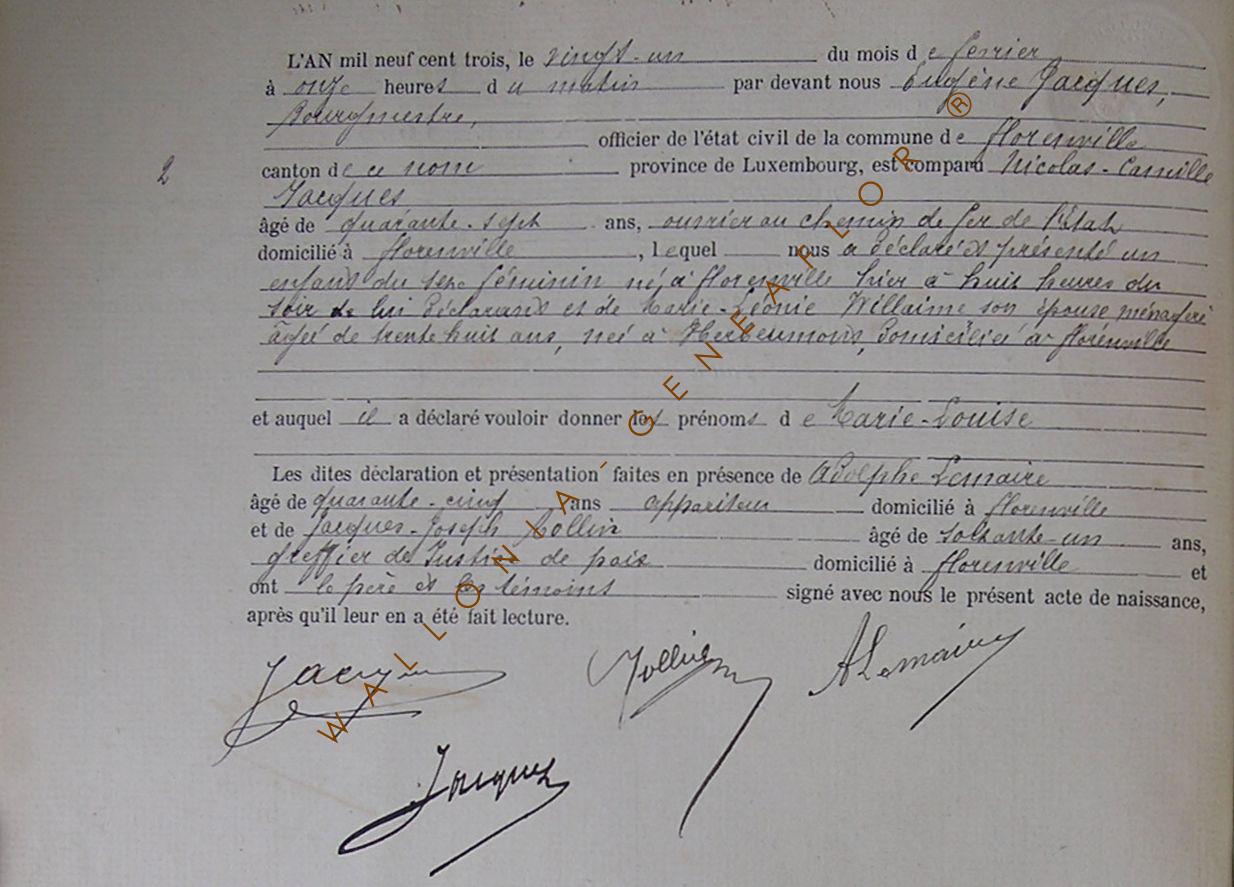 L'AN mil neuf cent trois, le vingt-un du mois de ferrier
à onze heures du matin par devant nous Eugène Jacques,
Bourgmestre,
officier de l'état civil de la commune de florenville
2 canton de ce nom province de Luxembourg, est comparu Nicolas-Camille
Jacques
âgé de quarante-sept ans, ouvrier au chemin de fer de l'État
domicilié à florenville, lequel nous a déclaré et présenté un
enfant du sexe féminin né à florenville hier à huit heures du
soir de lui Déclarant et de Marie-Léonie Willaime son épouse ménagère
âgée de trente huit ans, née à Herbeumont, Domiciliée à florenville
et auquel il a déclaré vouloir donner les prénoms de Marie-Louise
Les dites déclaration et présentation faites en présence de Adolphe Lemaire
âgé de quarante-cinq ans appariteur domicilié à florenville
et de Jacques-Joseph Collin âgé de soixante-un ans,
Greffier de Justice de paix domicilié à florenville et
ont le père et les témoins signé avec nous le présent acte de naissance,
après qu'il leur en a été fait lecture.
Jacques ALemaire
Jacques
WALLONIA-GENEAFLOR®